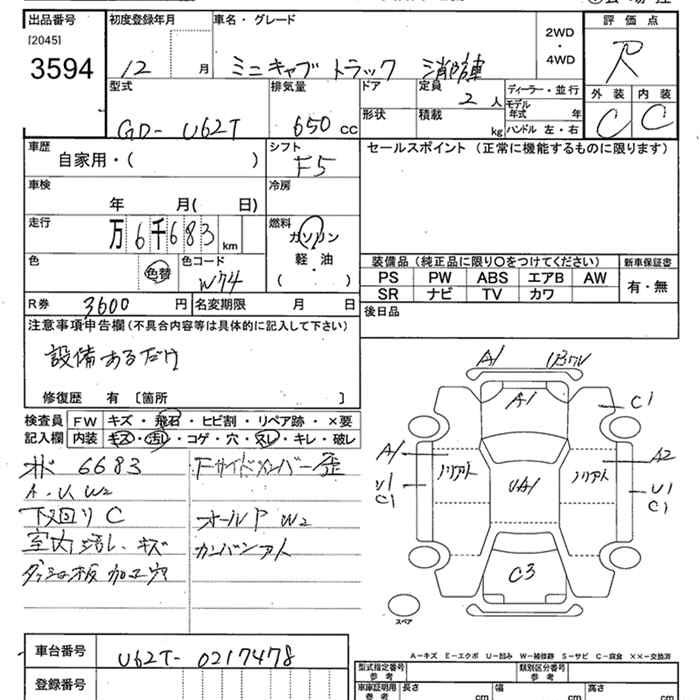 出品番号
[2045]
3594
初度登録年月
12
月
車名・グレード
ミニキャブ トラック 消防車
2WD
・
4WD
評価点
R
外装
内装
C
C
型式
GD-U62T
排気量
650 cc
ドア
形状
定員
2人
積載
kg
ディーラー・並行
モデル年式
年
ハンドル 左・右
車歴
自家用・( )
シフト
F5
セールスポイント (正常に機能するものに限ります)
車検
年 月( 日)
冷房
走行
万6千683 km
燃料
ガソリン
軽・油
( )
色
色替
色コード
W74
R券
3600 円
名変期限 月 日
装備品 (純正品に限り○をつけてください)
PS PW ABS エアB AW
SR ナビ TV カワ
新車保証書
有・無
後日品
注意事項申告欄 (不具合内容等は具体的に記入して下さい)
設備あるだけ
修復歴 有 [箇所 ]
検査員記入欄
FW キズ・飛石・ヒビ割・リペア跡・×要
内装 キズ・汚レ・コゲ・穴・スレ・キレ・破レ
メ 6683
A・U、W2
下回り C
室内汚れ、キズ
ダッシュ板 加工穴
Fサイドメンバー歪
オールP W2
カンバンアト
A1
A1
C1
A1
U1
C1
ノリアト
UA1
ノリアト
A2
U1
C1
C3
スペア
A-キズ E-エクボ U-凹み W-補修跡 S-サビ C-腐食 ××-交換済
車台番号
U62T-0217478
登録番号
型式指定番号
参考
類別区分番号
参考
車庫証明用
参考
長さ cm
幅 cm
高さ cm